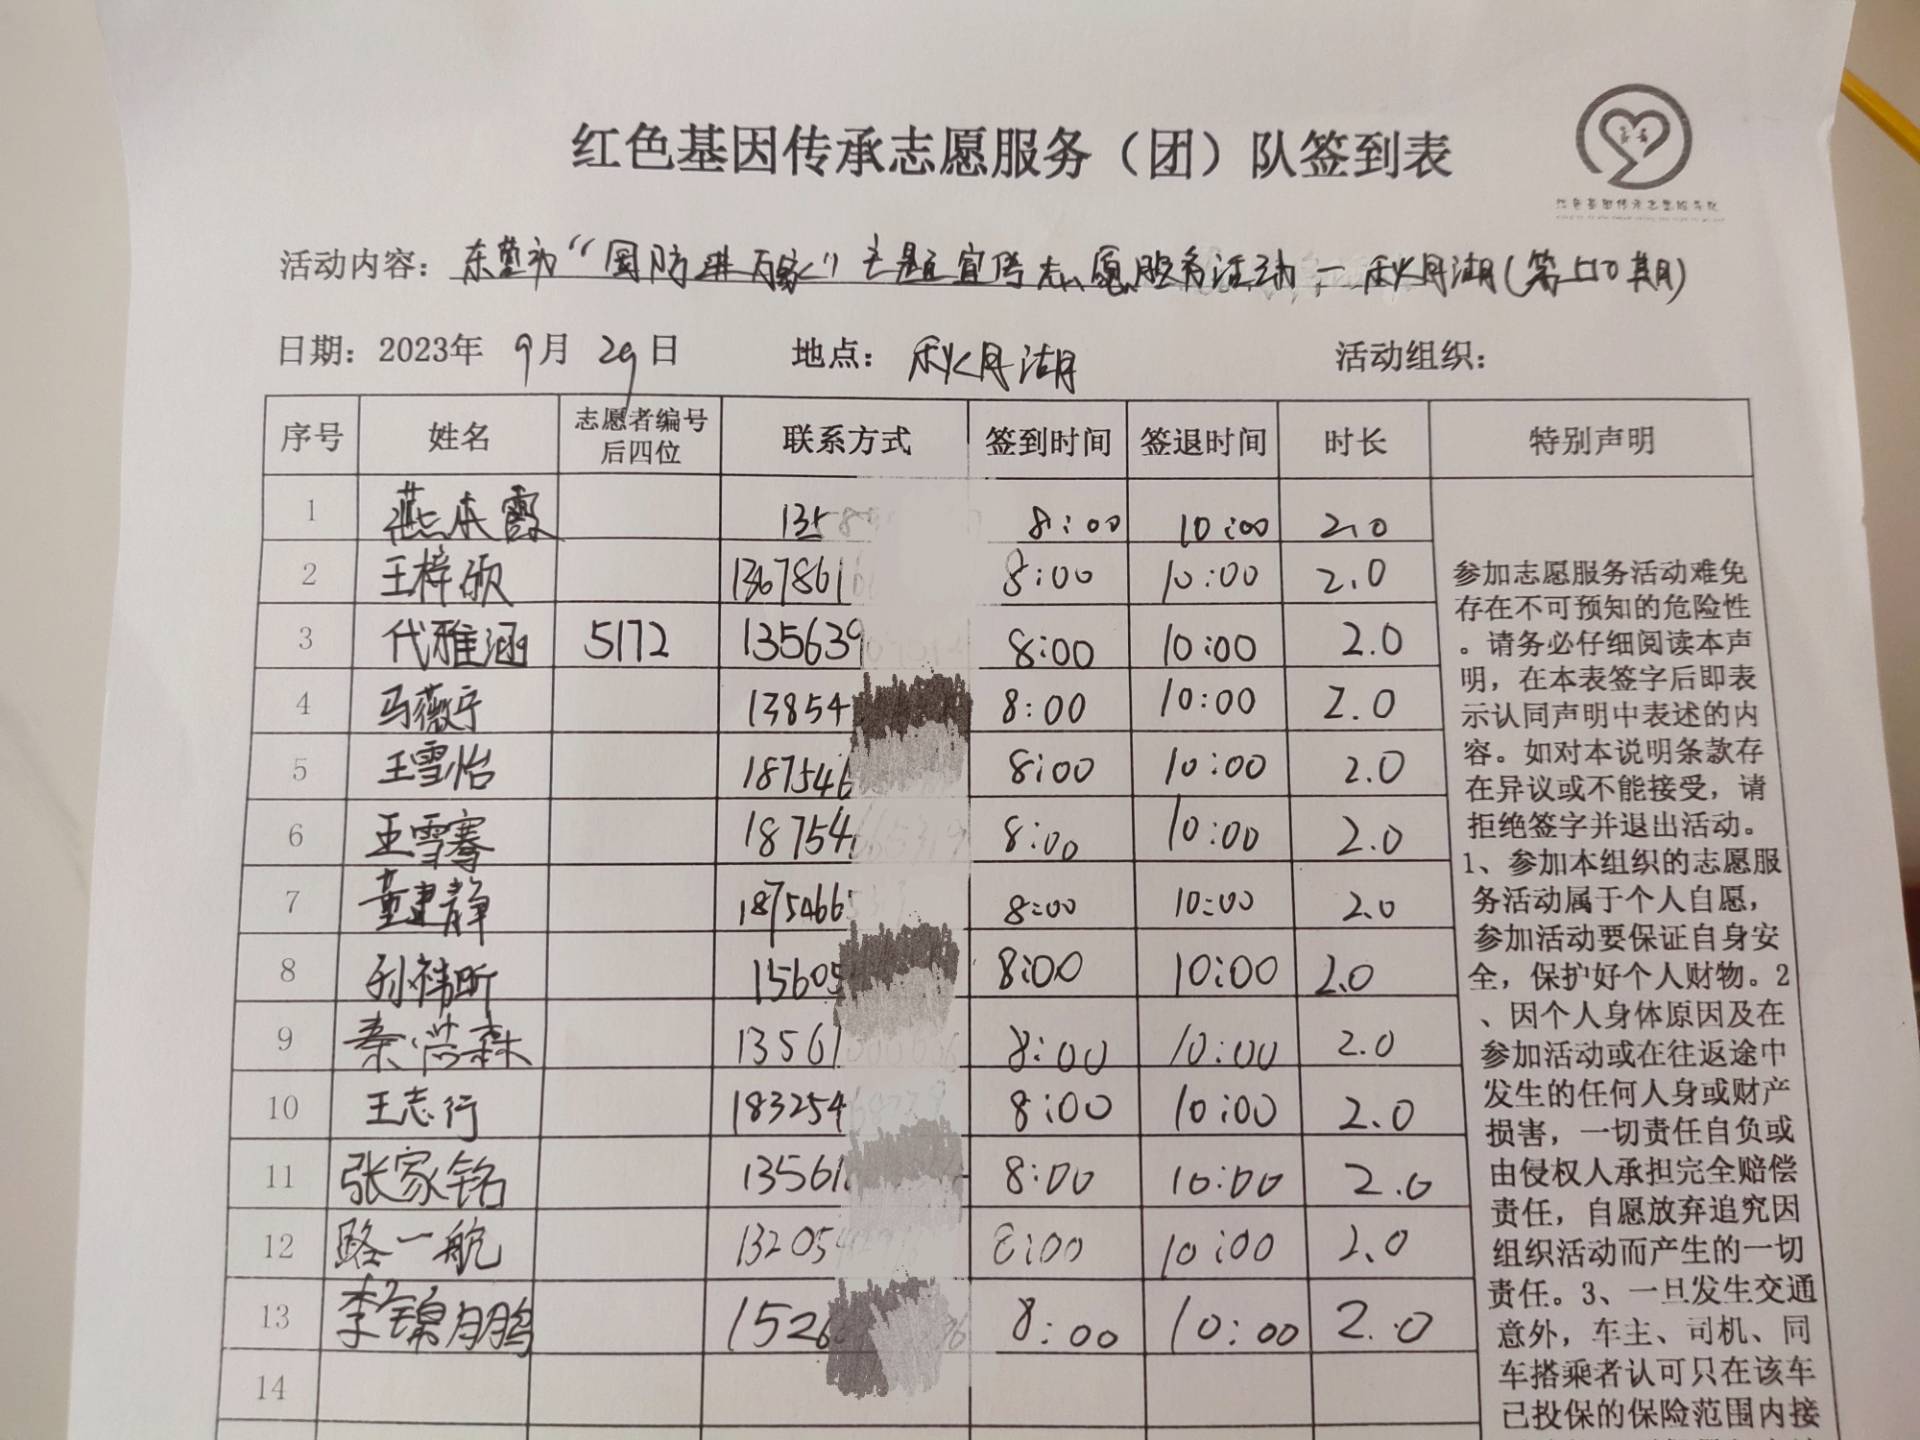 红色基因传承志愿服务（团）队签到表
红色基因传承志愿服务队
活动内容：东营市“国防进万家”主题宣传志愿服务活动－秋月湖(第510期)
日期：2023年 9月 29日 地点：秋月湖 活动组织：
序号 姓名 志愿者编号后四位 联系方式 签到时间 签退时间 时长 特别声明
1 燕本霞 135 8:00 10:00 2.0
2 王梓硕 1367861 8:00 10:00 2.0
3 代雅涵 5172 135639 8:00 10:00 2.0
4 马薇宁 13854 8:00 10:00 2.0
5 王雪怡 187546 8:00 10:00 2.0
6 王雪骞 18754 8:00 10:00 2.0
7 董建静 18754665 8:00 10:00 2.0
8 孙祎昕 15605 8:00 10:00 2.0
9 秦浩森 13561 8:00 10:00 2.0
10 王志行 183254 8:00 10:00 2.0
11 张家铭 13561 8:00 10:00 2.0
12 路一航 13205 8:00 10:00 2.0
13 李锦鹏 1526 8:00 10:00 2.0
14
参加志愿服务活动难免
存在不可预知的危险性
。请务必仔细阅读本声
明，在本表签字后即表
示认同声明中表述的内
容。如对本说明条款存
在异议或不能接受，请
拒绝签字并退出活动。
1、参加本组织的志愿服
务活动属于个人自愿，
参加活动要保证自身安
全，保护好个人财物。2
、因个人身体原因及在
参加活动或在往返途中
发生的任何人身或财产
损害，一切责任自负或
由侵权人承担完全赔偿
责任，自愿放弃追究因
组织活动而产生的一切
责任。3、一旦发生交通
意外，车主、司机、同
车搭乘者认可只在该车
已投保的保险范围内接